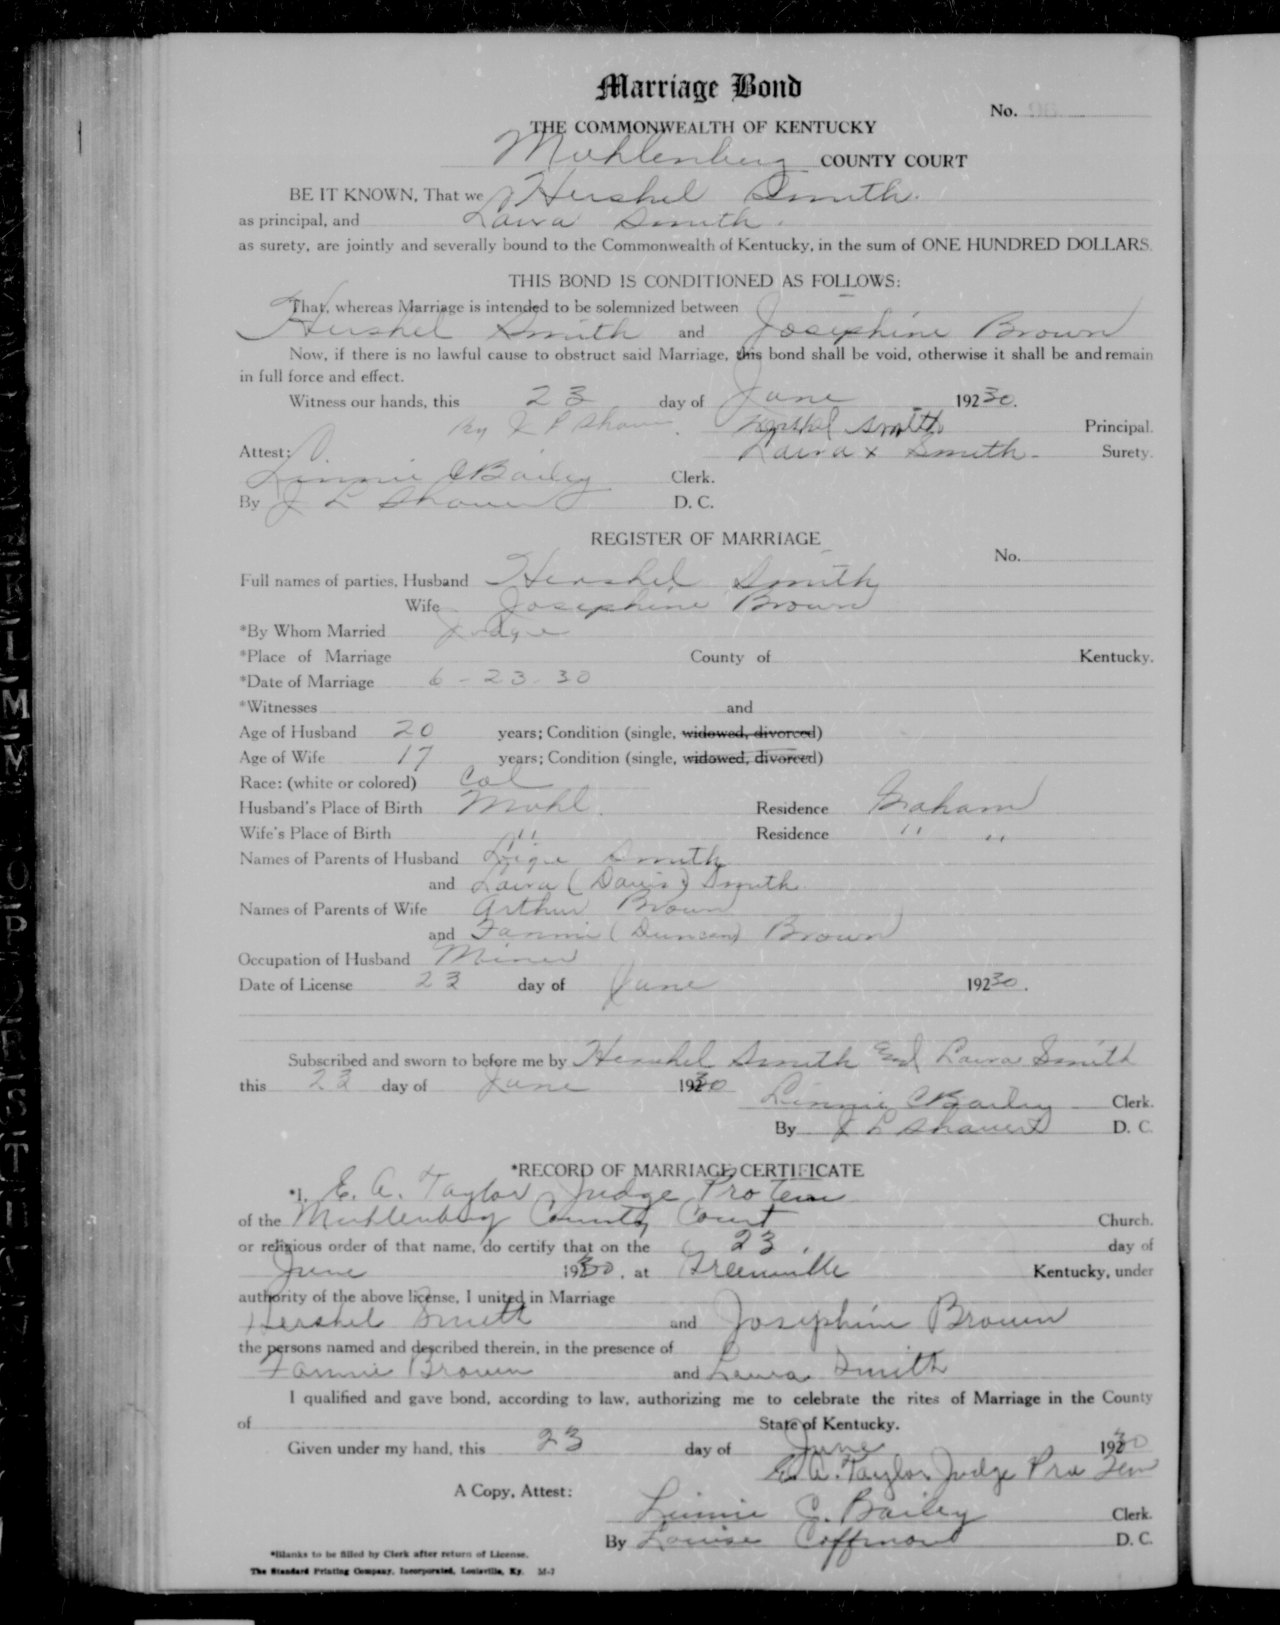 Marriage Bond
No.
THE COMMONWEALTH OF KENTUCKY
Muhlenberg COUNTY COURT
BE IT KNOWN, That we Hershel Smith.
as principal, and Laura Smith.
as surety, are jointly and severally bound to the Commonwealth of Kentucky, in the sum of ONE HUNDRED DOLLARS.
THIS BOND IS CONDITIONED AS FOLLOWS:
That, whereas Marriage is intended to be solemnized between
Hershel Smith and Josephine Brown
Now, if there is no lawful cause to obstruct said Marriage, this bond shall be void, otherwise it shall be and remain
in full force and effect.
Witness our hands, this 23 day of June 19230.
By J L Shaver. Hershel Smith Principal.
Attest: Laura x Smith Surety.
Linnie C Bailey Clerk.
By J L Shaver D. C.
REGISTER OF MARRIAGE
No.
Full names of parties, Husband Hershel Smith
Wife Josephine Brown
*By Whom Married Judge
*Place of Marriage County of Kentucky.
*Date of Marriage 6-23-30
*Witnesses and
Age of Husband 20 years; Condition (single, widowed, divorced)
Age of Wife 17 years; Condition (single, widowed, divorced)
Race: (white or colored) Col
Husband's Place of Birth Muhl. Residence Graham
Wife's Place of Birth " Residence " "
Names of Parents of Husband Smith
and Laura (Davis) Smith
Names of Parents of Wife Arthur Brown
and Fannie (Duncan) Brown
Occupation of Husband Miner
Date of License 23 day of June 19230.
Subscribed and sworn to before me by Hershel Smith and Laura Smith
this 23 day of June 1930
Linnie C Bailey Clerk.
By J L Shaver D. C.
*RECORD OF MARRIAGE CERTIFICATE
*I, E. A. Taylor Judge Pro Tem
of the Muhlenberg County Court Church.
or religious order of that name, do certify that on the 23 day of
June 1930, at Greenville Kentucky, under
authority of the above license, I united in Marriage
Hershel Smith and Josephine Brown
the persons named and described therein, in the presence of
Fannie Brown and Laura Smith
I qualified and gave bond, according to law, authorizing me to celebrate the rites of Marriage in the County
of State of Kentucky.
Given under my hand, this 23 day of June 1930
E. A. Taylor Judge Pro Tem
A Copy, Attest:
Linnie C. Bailey Clerk.
By Louise Coffman D. C.
*Blanks to be filled by Clerk after return of License.
The Standard Printing Company, Incorporated, Louisville, Ky. M-7